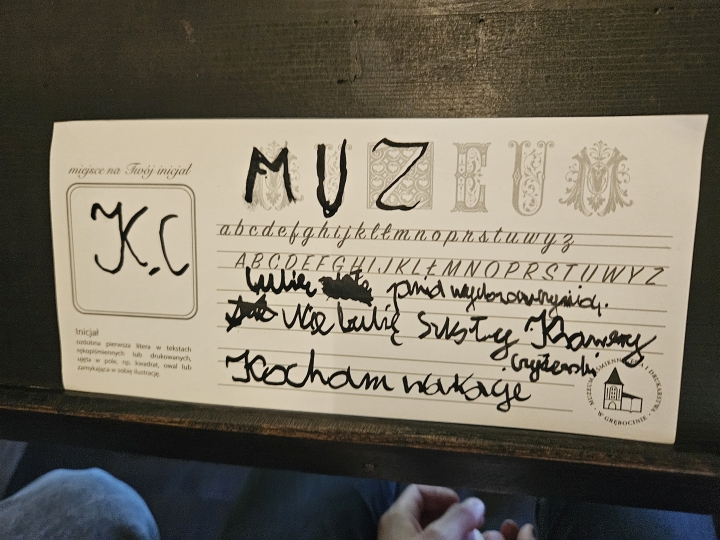 miejsce na Twój inicjał
K.C
Inicjał
ozdobna pierwsza litera w tekstach rękopiśmiennych lub drukowanych, ujęta w pole, np. kwadrat, owal lub zamykająca w sobie ilustrację.
MUZEUM
abcdefghijklłmnoprstuwyz
ABCDEFGHIJKLŁMNOPRSTUWYZ
Lubię
Nie lubię siostry
Kocham wakacje
MUZEUM PIŚMIENNICTWA I DRUKARSTWA
W GRĘBOCINIE